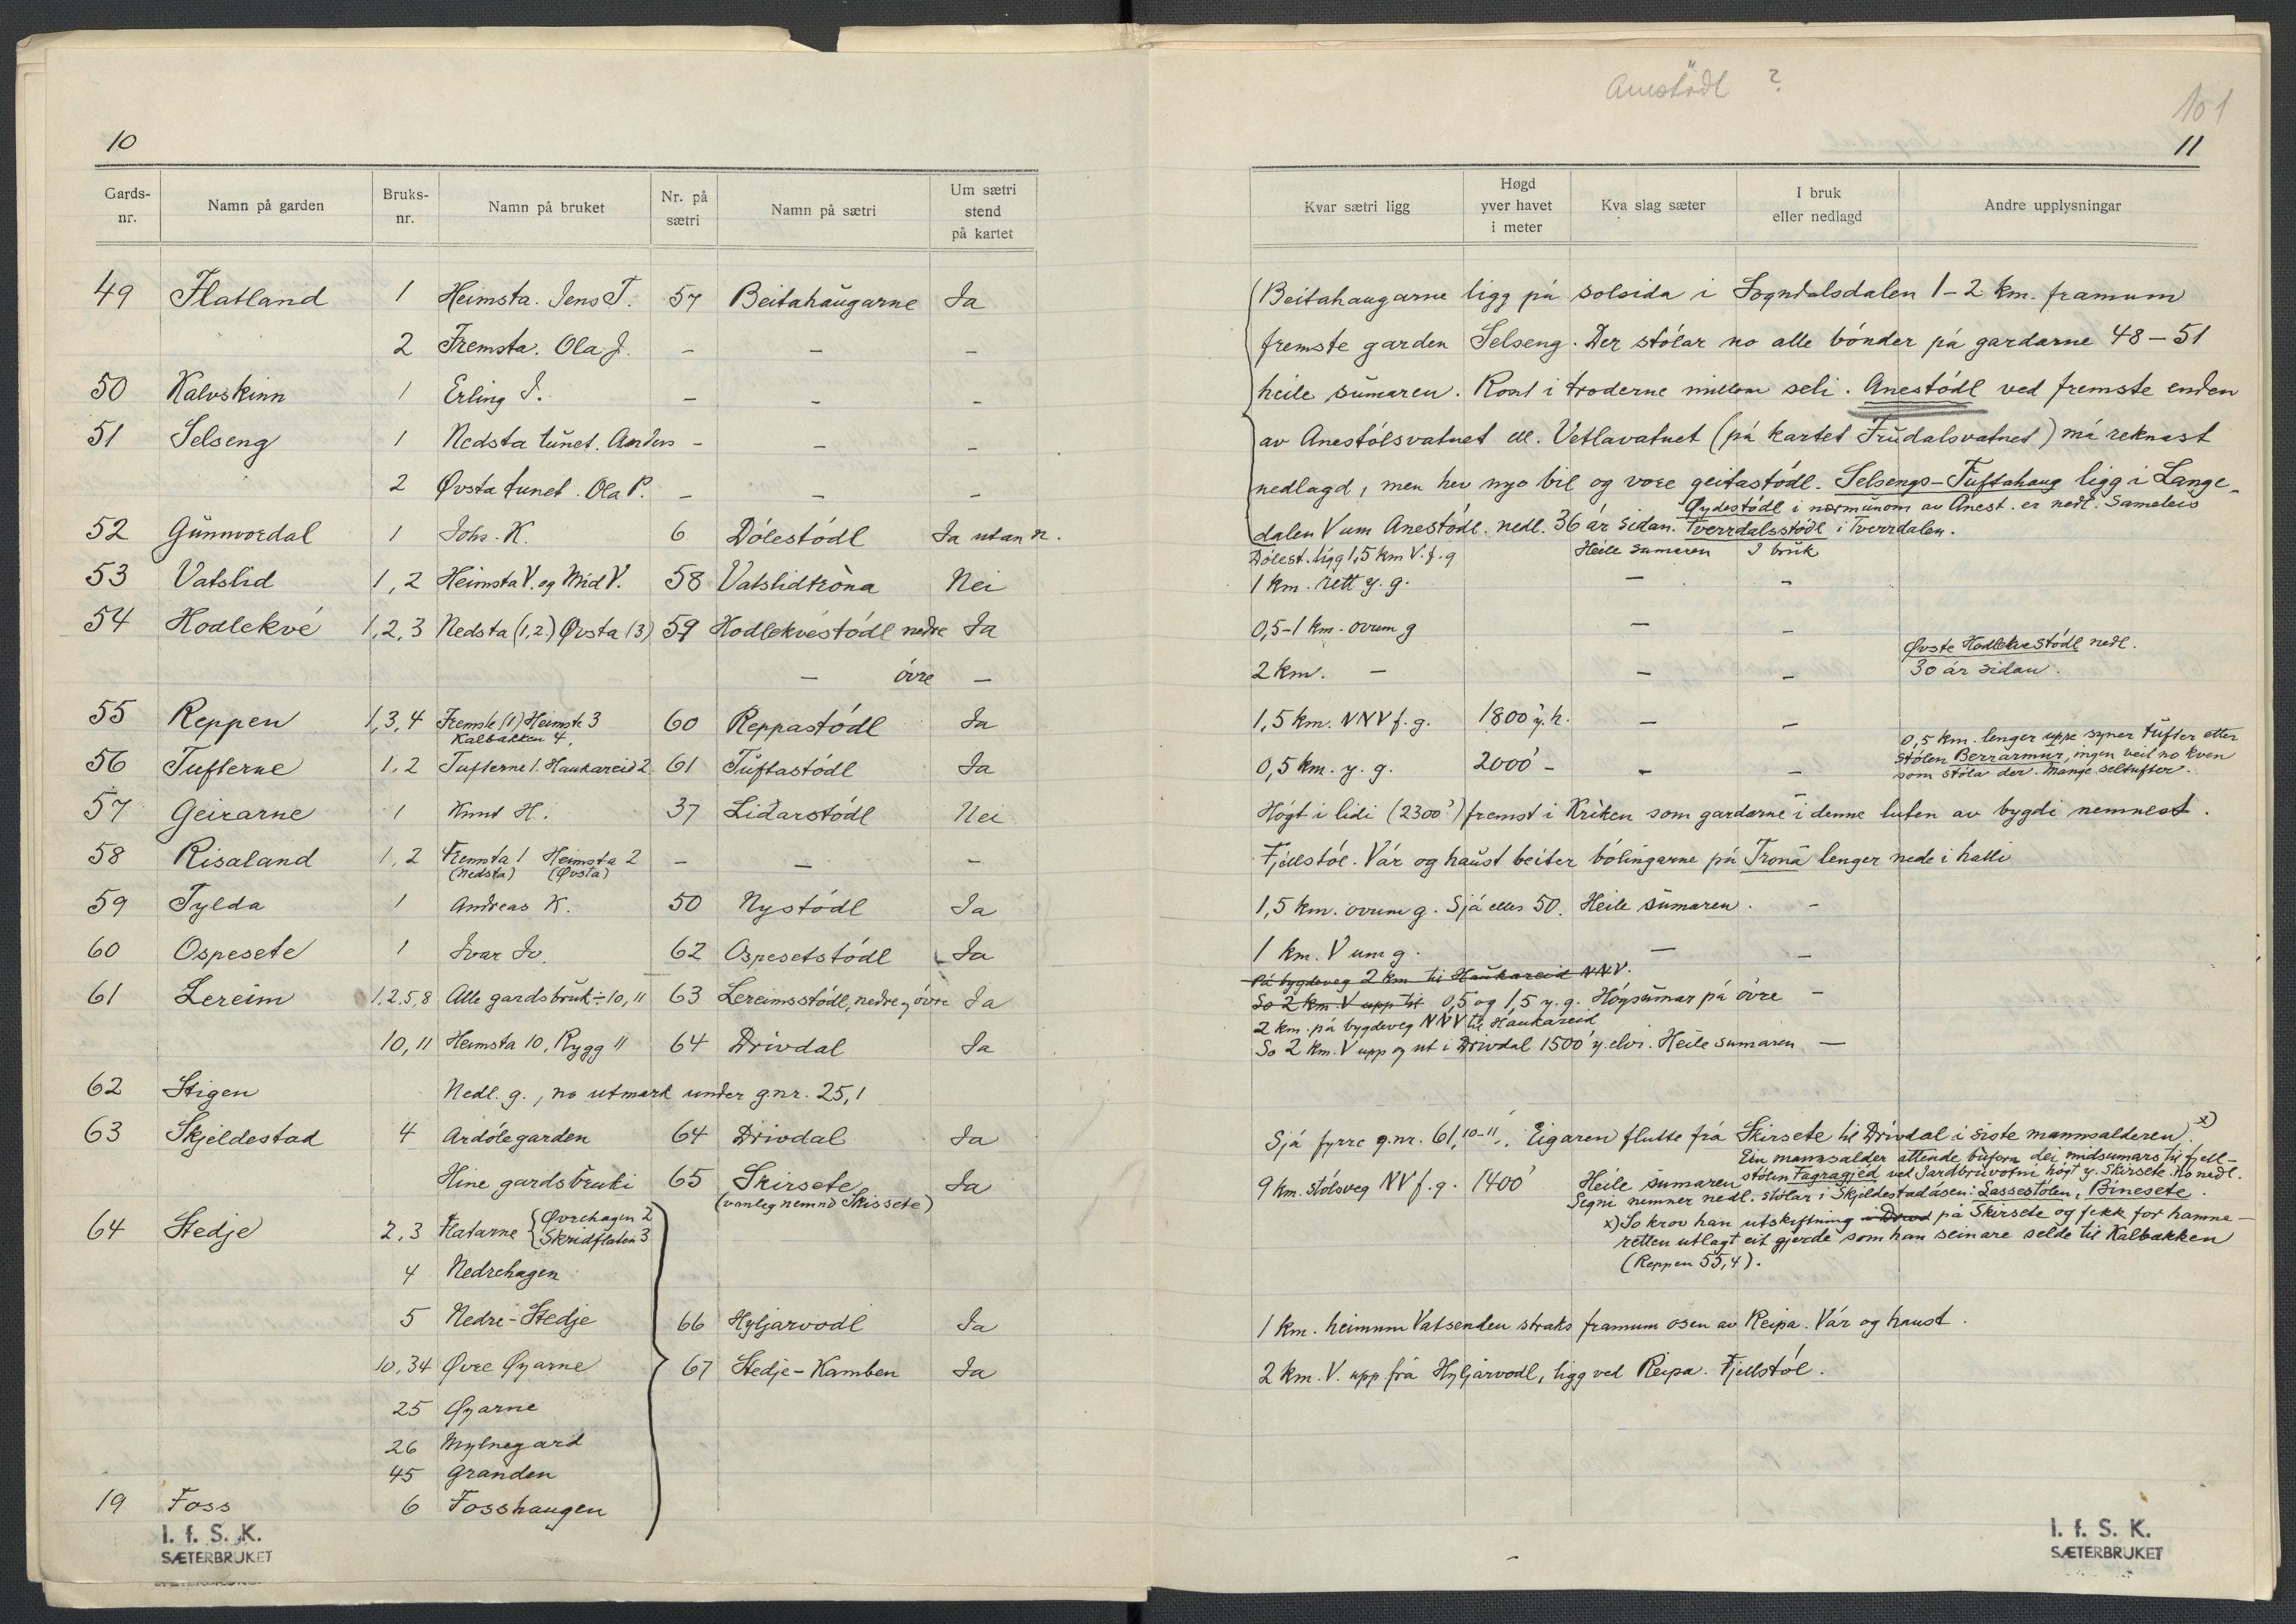 10
Gards-nr. Namn på garden Bruks-nr. Namn på bruket Nr. på sætri Namn på sætri Um sætri stend på kartet
49 Flatland 1 Heimsta. Jens T. 57 Beitahaugarne Ja
2 Fremsta. Ola J. – – –
50 Kalvskinn 1 Erling J. – – –
51 Selseng 1 Nedsta tunet. Anders – – –
2 Øvsta tunet. Ola P. – – –
52 Gunnvordal 1 Johs. K. 6 Dólestódl Ja utan n.
53 Vatslid 1, 2 Heimsta V. og Mid V. 58 Vatslidtròna Nei
54 Hodlekvé 1, 2, 3 Nedsta (1,2) Øvsta (3) 59 Hodlekvéstódl nedre Ja
– óvre –
55 Reppen 1, 3, 4 Fremste (1) Heimste 3 60 Reppastódl Ja
Kalbakken 4.
56 Tufterne 1. 2 Tufterne 1. Haukareid 2. 61 Tuftastódl Ja
57 Geirarne 1 Knut H. 37 Lidarstódl Nei
58 Risaland 1, 2 Fremsta 1 Heimsta 2 – – –
(Nedsta) (Øvsta)
59 Tylda 1 Andreas K. 50 Nystódl Ja
60 Ospesete 1 Ivar Iv. 62 Ospesetstódl Ja
61 Lereim 1.2.5,8 Alle gardsbruk ÷ 10, 11 63 Lereimsstódl, nedre og óvre Ja
10, 11 Heimsta 10, Rygg 11 64 Drivdal Ja
62 Stigen Nedl. g., no utmark under g.nr. 25,1
63 Skjeldestad 4 Ardólegarden 64 Drivdal Ja
Hine gardsbruki 65 Skirsete Ja
(vanleg nemnd Skissete)
64 Stedje 2, 3 Flatarne { Øvrehagen 2
Skridflaten 3
4 Nedrehagen
5 Nedre-Stedje 66 Hyljarvodl Ja
10, 34 Øvre Øyarne 67 Stedje-Kamben Ja
25 Øyarne
26 Mylnegard
45 Granden
19 Foss 6 Fosshaugen
I. f. S. K.
SÆTERBRUKET
Anestödl ?
101
11
Kvar sætri ligg Høgd yver havet i meter Kva slag sæter I bruk eller nedlagd Andre upplysningar
Beitahaugarne ligg på solsida i Sogndalsdalen 1–2 km. framum
fremste garden Selseng. Der stólar no alle bónder på gardarne 48–51
heile sumaren. Rout i troderne millom seli. Anestódl ved fremste enden
av Anestólsvatnet el. Vetlavatnet (på kartet Frudalsvatnet) må reknast
nedlagd, men hev mye bil og vore geitastódl. Selsengs-Tuftahaug ligg i Lange-
Øydestódl i nærmunom av Anest. er nedl. Sameleis
dalen V um Anestódl. nedl. 36 år sidan. Tverrdalsstódl i Tverrdalen.
Dólest. ligg 1,5 km V. f. g Heile sumaren I bruk
1 km. rett y. g. – –
0,5–1 km. ovum g – –
Øvste Hodlekvestódl nedl.
2 km. – – – 30 år sidan.
1,5 km. NNV f. g. 1800' y. h. – –
0,5 km. lenger uppe syner tufter etter
stólen Berrarmur, ingen veit no kven
0,5 km. y. g. 2000' – – – som stóla der. Mange seltufter.
Högt i lidi (2300') fremst i Kriken som gardarne i denne luten av bygdi nemnest.
Fjellstól. Vår og haust beiter bólingarne på Trona lenger nede i halli
1,5 km. ovum g. Sjå elles 50. Heile sumaren. –
1 km. V um g. – –
På bygdeveg 2 km til Haukareid NNV.
So 2 km. V upp til 0,5 og 1,5 y. g. Högsumar på óvre –
2 km. på bygdeveg NNV til Haukareid
So 2 km. V upp og ut i Drivdal 1500' y. elvi. Heile sumaren –
Sjå fyrre g.nr. 61, 10–11. Eigaren flutte frå Skirsete til Drivdal i siste mannsalderen. x)
Ein mannsalder attende bufora dei midsumars til fjell-
9 km. stólsveg NV f. g. 1400' Heile sumaren stólen Fagragjed ved Jardbruvotni högt y. Skirsete. No nedl.
Segni nemner nedl. stólar i Skjeldestadåsen: Lassestólen, Binesete.
x) So krov han utskiftning i Drivd på Skirsete og fekk for hamne-
retten utlagt eit gjerde som han seinare selde til Kalbakken
(Reppen 55,4).
1 km. heimum Vatsenden straks framum osen av Reipa. Vår og haust.
2 km. V. upp frå Hyljarvodl, ligg ved Reipa. Fjellstól.
I. f. S. K.
SÆTERBRUKET